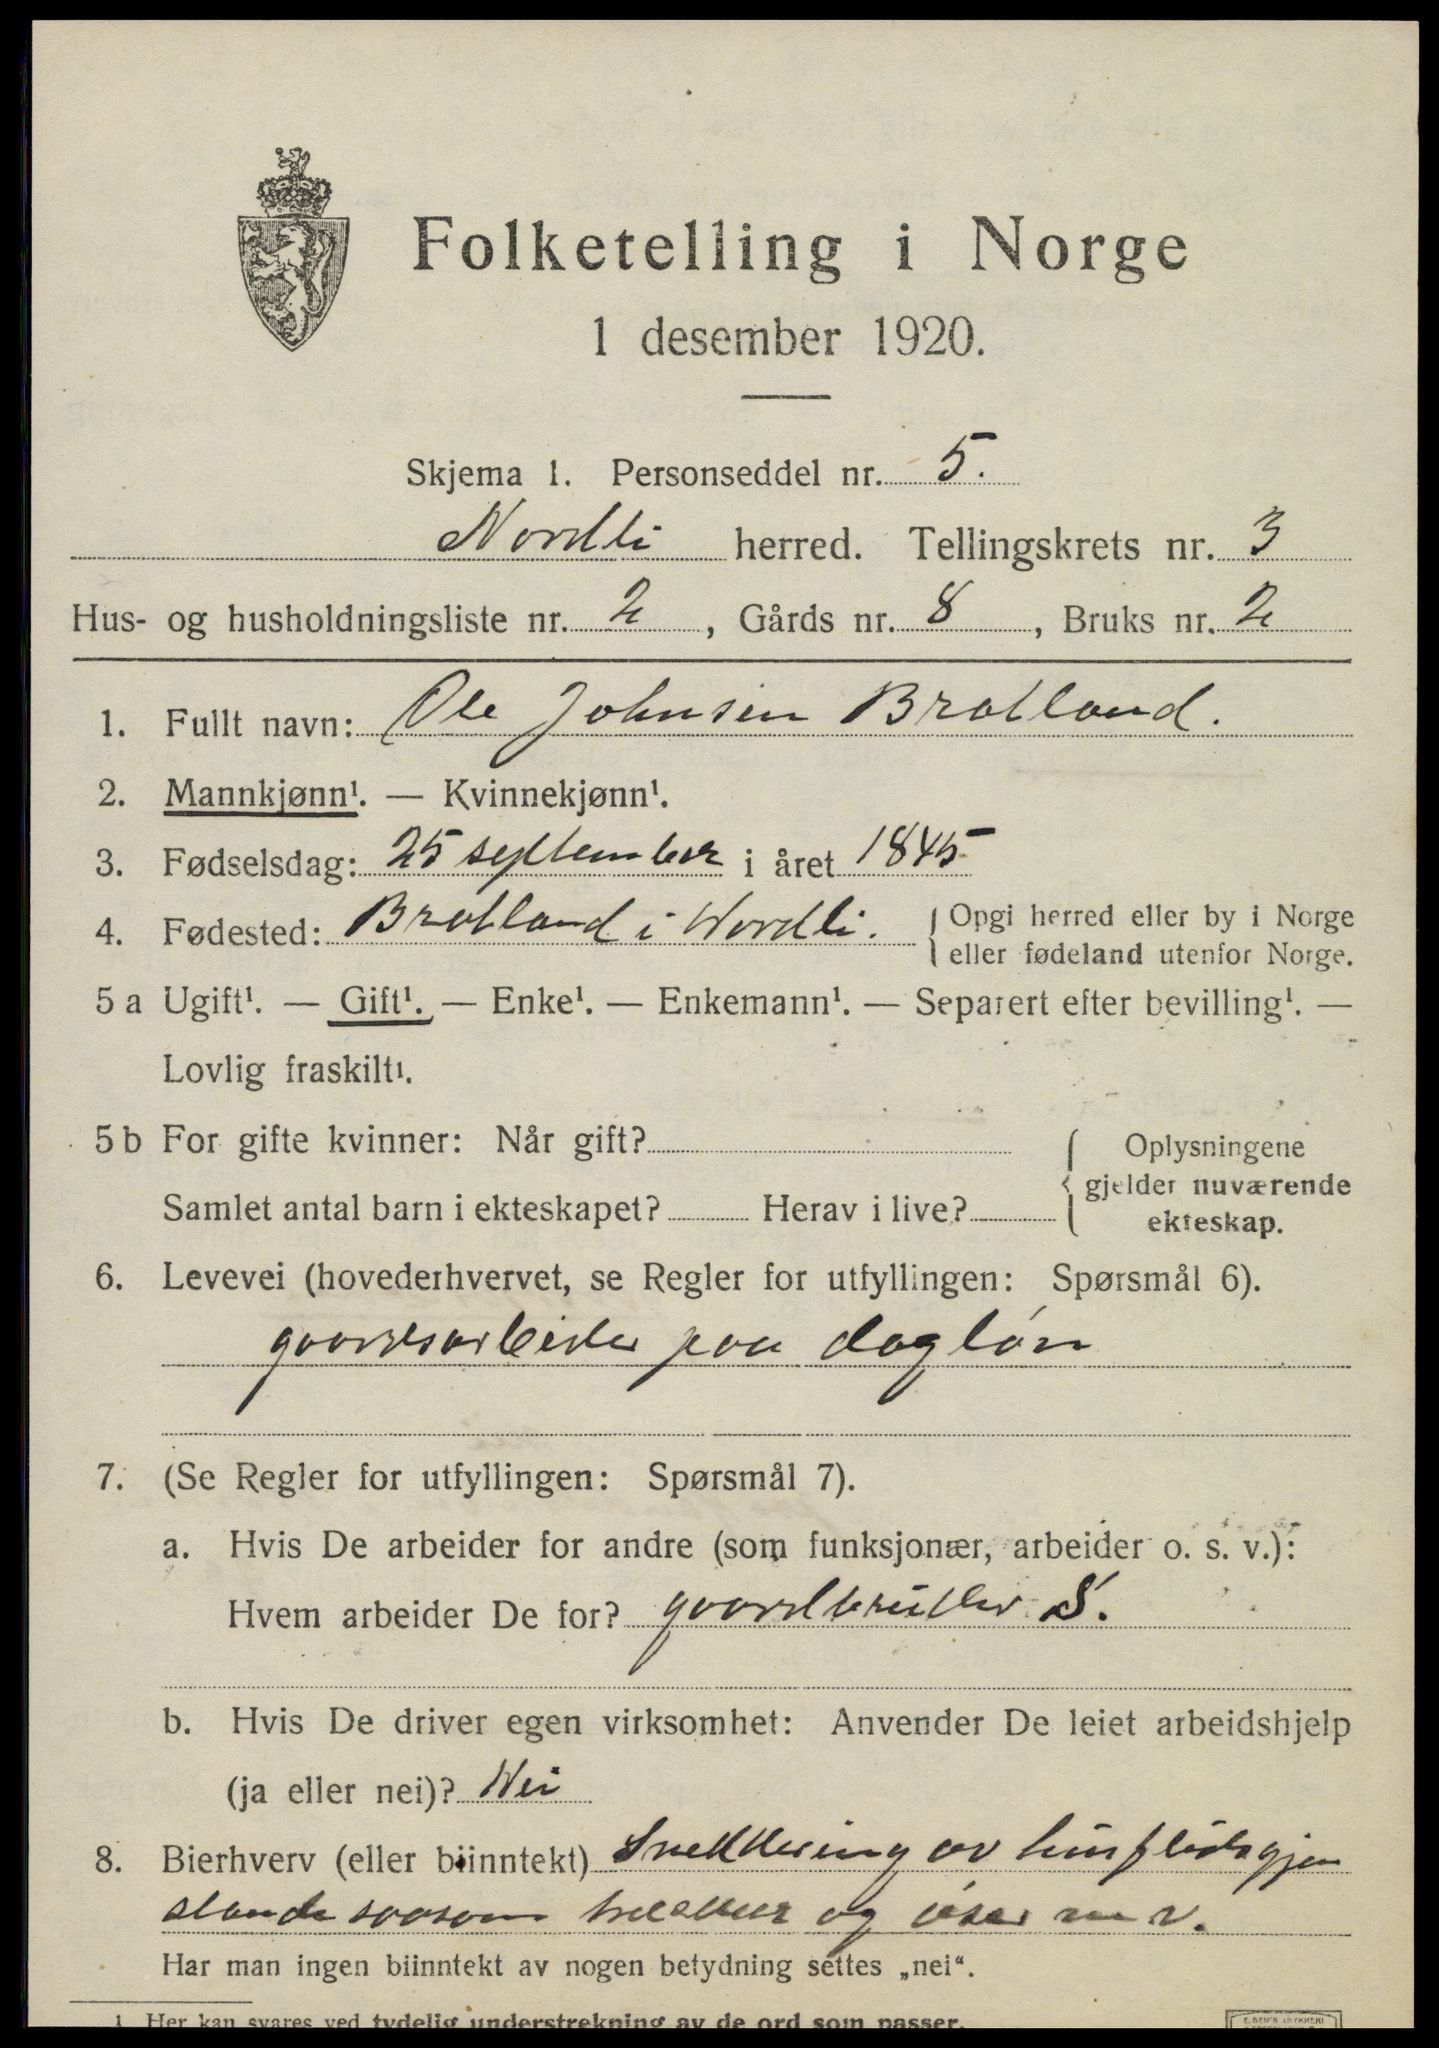 Folketelling i Norge
1 desember 1920.
Skjema 1. Personseddel nr. 5.
Nordli herred. Tellingskrets nr. 3
Hus- og husholdningsliste nr. 2, Gårds nr. 8, Bruks nr. 2
1. Fullt navn: Ole Johnsen Bratland.
2. Mannkjønn¹. — Kvinnekjønn¹.
3. Fødselsdag: 25 september i året 1845
4. Fødested: Bratland i Nordli. { Opgi herred eller by i Norge
eller fødeland utenfor Norge.
5 a Ugift¹. — Gift¹. — Enke¹. — Enkemann¹. — Separert efter bevilling¹. —
Lovlig fraskilt¹.
5 b For gifte kvinner: Når gift? { Oplysningene
gjelder nuværende
Samlet antal barn i ekteskapet? Herav i live? ekteskap.
6. Levevei (hovederhvervet, se Regler for utfyllingen: Spørsmål 6).
gaardsarbeider paa dagløn
7. (Se Regler for utfyllingen: Spørsmål 7).
a. Hvis De arbeider for andre (som funksjonær, arbeider o. s. v.):
Hvem arbeider De for? gaardbruker S.
b. Hvis De driver egen virksomhet: Anvender De leiet arbeidshjelp
(ja eller nei)? Nei
8. Bierhverv (eller biinntekt) Snekkering av husflidsgjen
stande saasom og øser m v.
Har man ingen biinntekt av nogen betydning settes „nei“.
1 Her kan svares ved tydelig understrekning av de ord som passer.